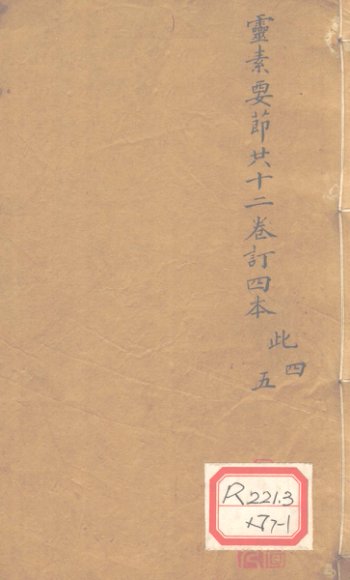 靈素要節共十二卷訂四本
此四
五
R221.3
x77-1